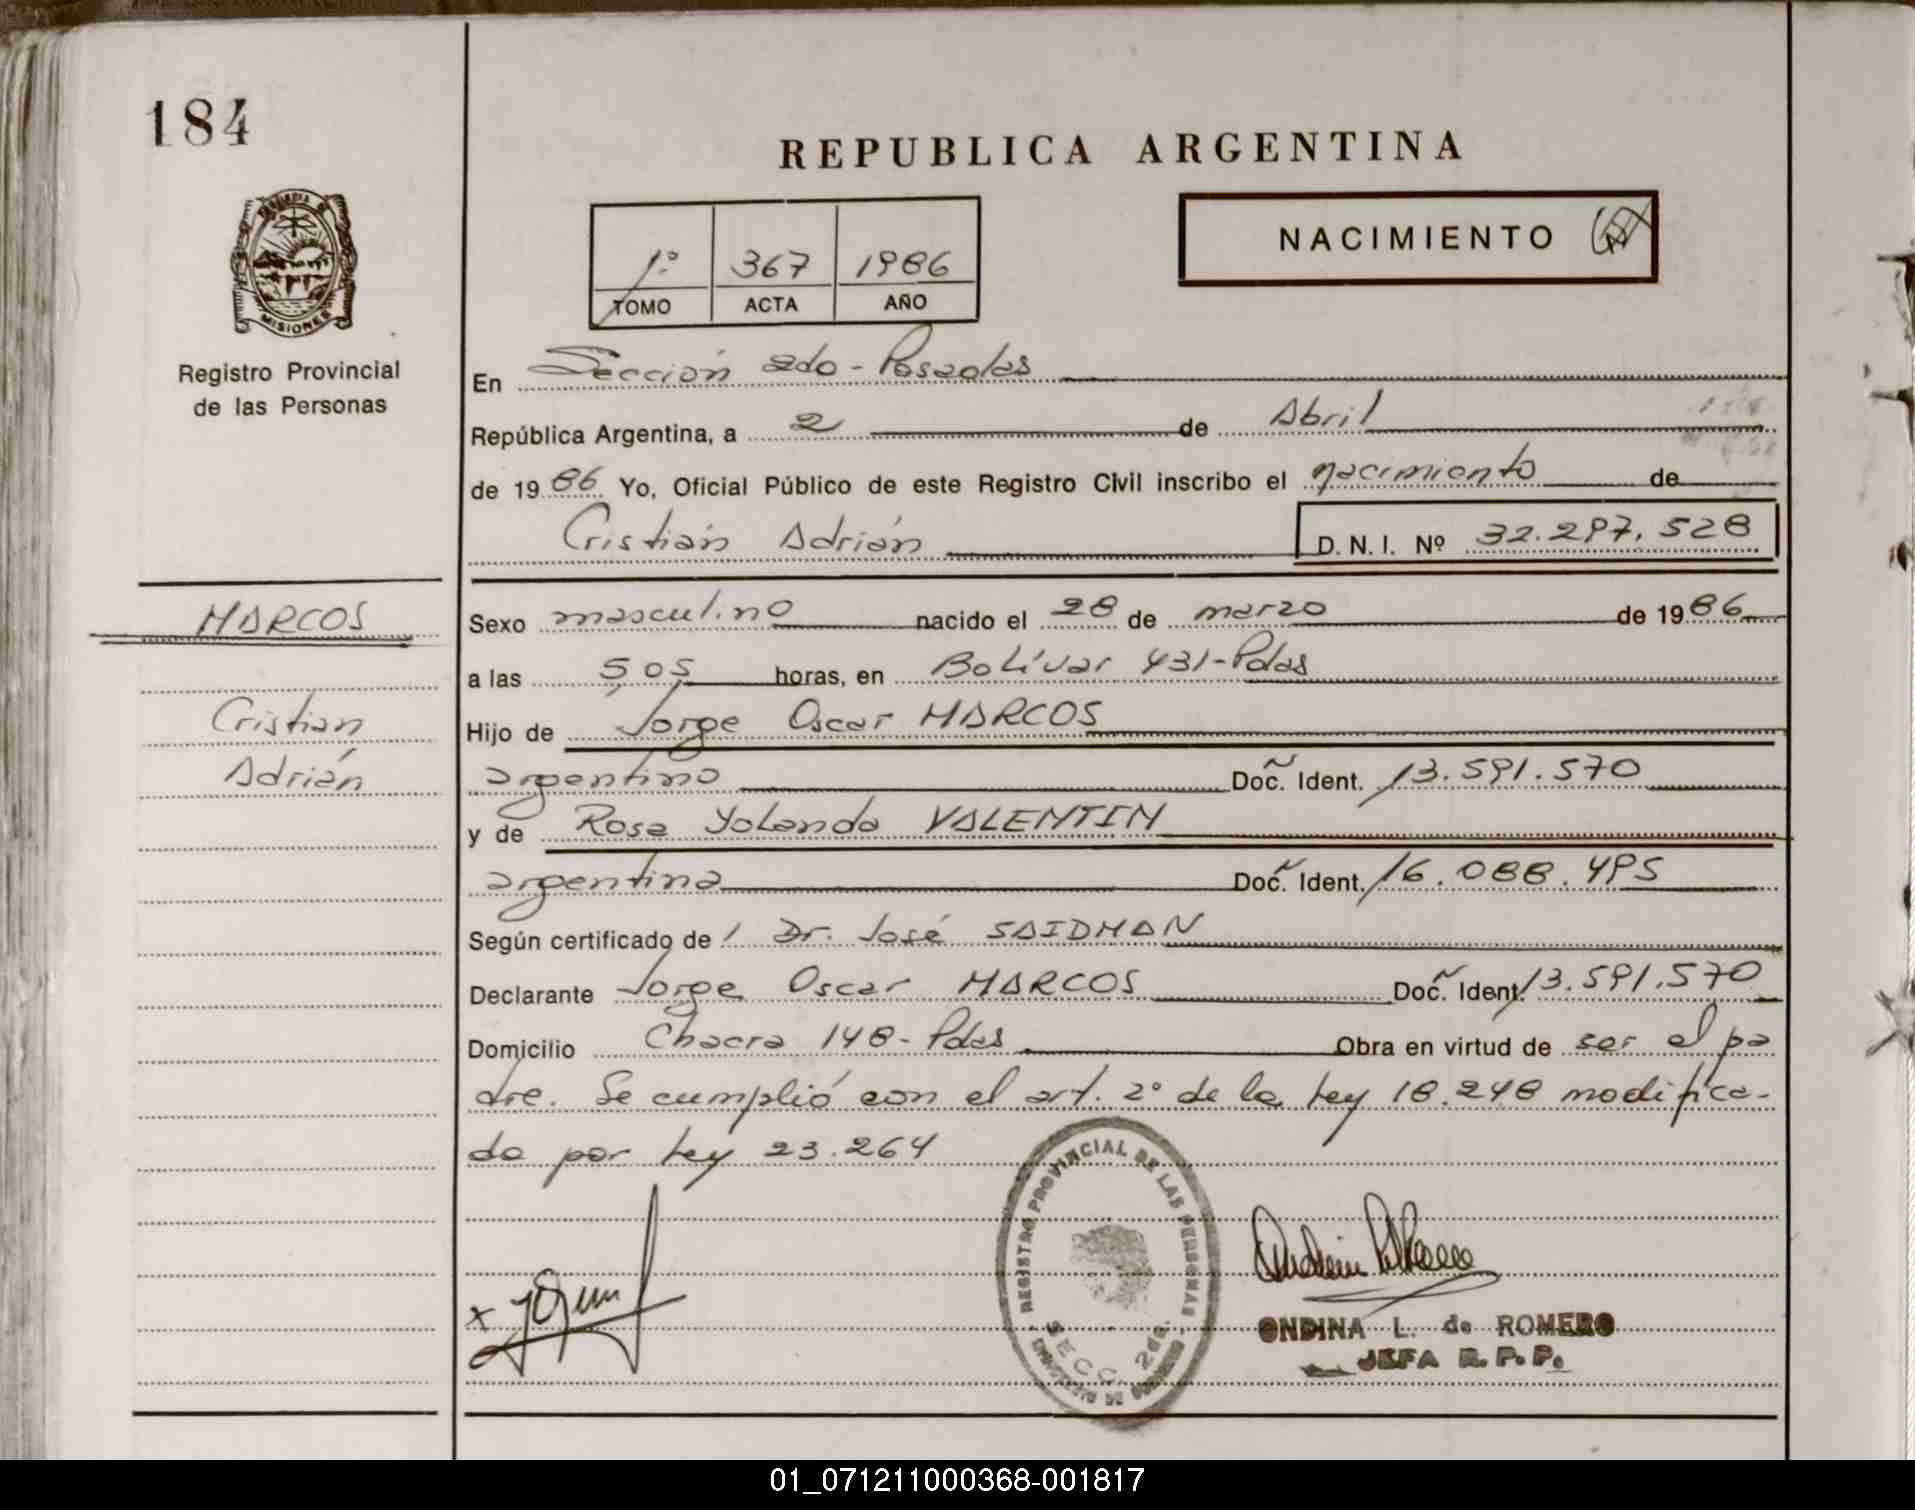 184
REPUBLICA ARGENTINA
1º 367 1986
TOMO ACTA AÑO
NACIMIENTO
MISIONES
Registro Provincial
de las Personas
En Sección 2da - Posadas
República Argentina, a 2 de Abril
de 1986 Yo, Oficial Público de este Registro Civil inscribo el nacimiento de
Cristián Adrián D. N. I. Nº 32.297.528
MARCOS
Cristian
Adrián
Sexo masculino nacido el 28 de marzo de 1986
a las 5,05 horas, en Bolívar 431-Pdas
Hijo de Jorge Oscar MARCOS
argentino Doc. Ident. 13.591.570
y de Rosa Yolanda VALENTIN
argentina Doc. Ident. 16.088.495
Según certificado de Dr. José SAIDMAN
Declarante Jorge Oscar MARCOS Doc. Ident. 13.591.570
Domicilio Chacra 148-Pdas Obra en virtud de ser el pa
dre. Se cumplió con el art. 2º de la Ley 18.248 modifica-
da por Ley 23.264
REGISTRO PROVINCIAL DE LAS PERSONAS
SECC. 2da.
ONDINA L. de ROMERO
JEFA R. P. P.
01_071211000368-001817